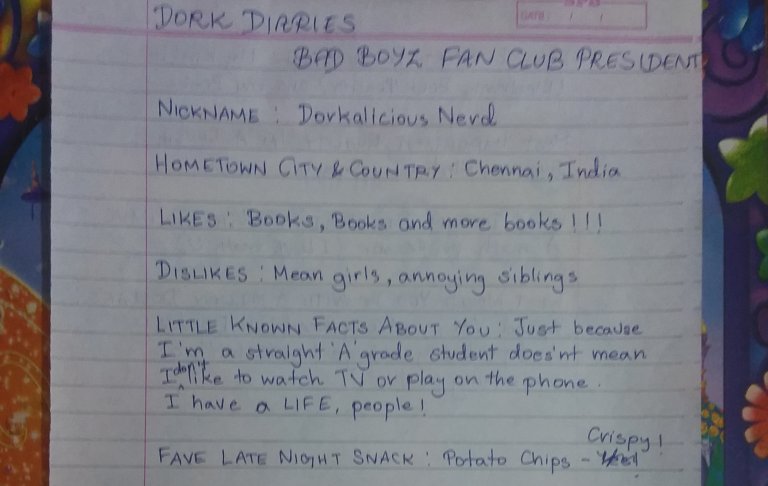 DORK DIARIES
DATE: / /
BAD BOYZ FAN CLUB PRESIDENT
NICKNAME : Dorkalicious Nerd
HOMETOWN CITY & COUNTRY : Chennai, India
LIKES : Books, Books and more books !!!
DISLIKES : Mean girls, annoying siblings
LITTLE KNOWN FACTS ABOUT YOU : Just because
I'm a straight 'A' grade student does'nt mean
I don't like to watch TV or play on the phone.
I have a LIFE, people!
Crispy!
FAVE LATE NIGHT SNACK : Potato Chips -